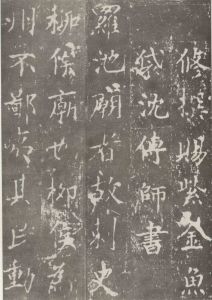 修撰賜紫金魚
袋沈傳師書
羅池廟者故刺史
柳侯廟也柳侯為
州不鄙夷其民動